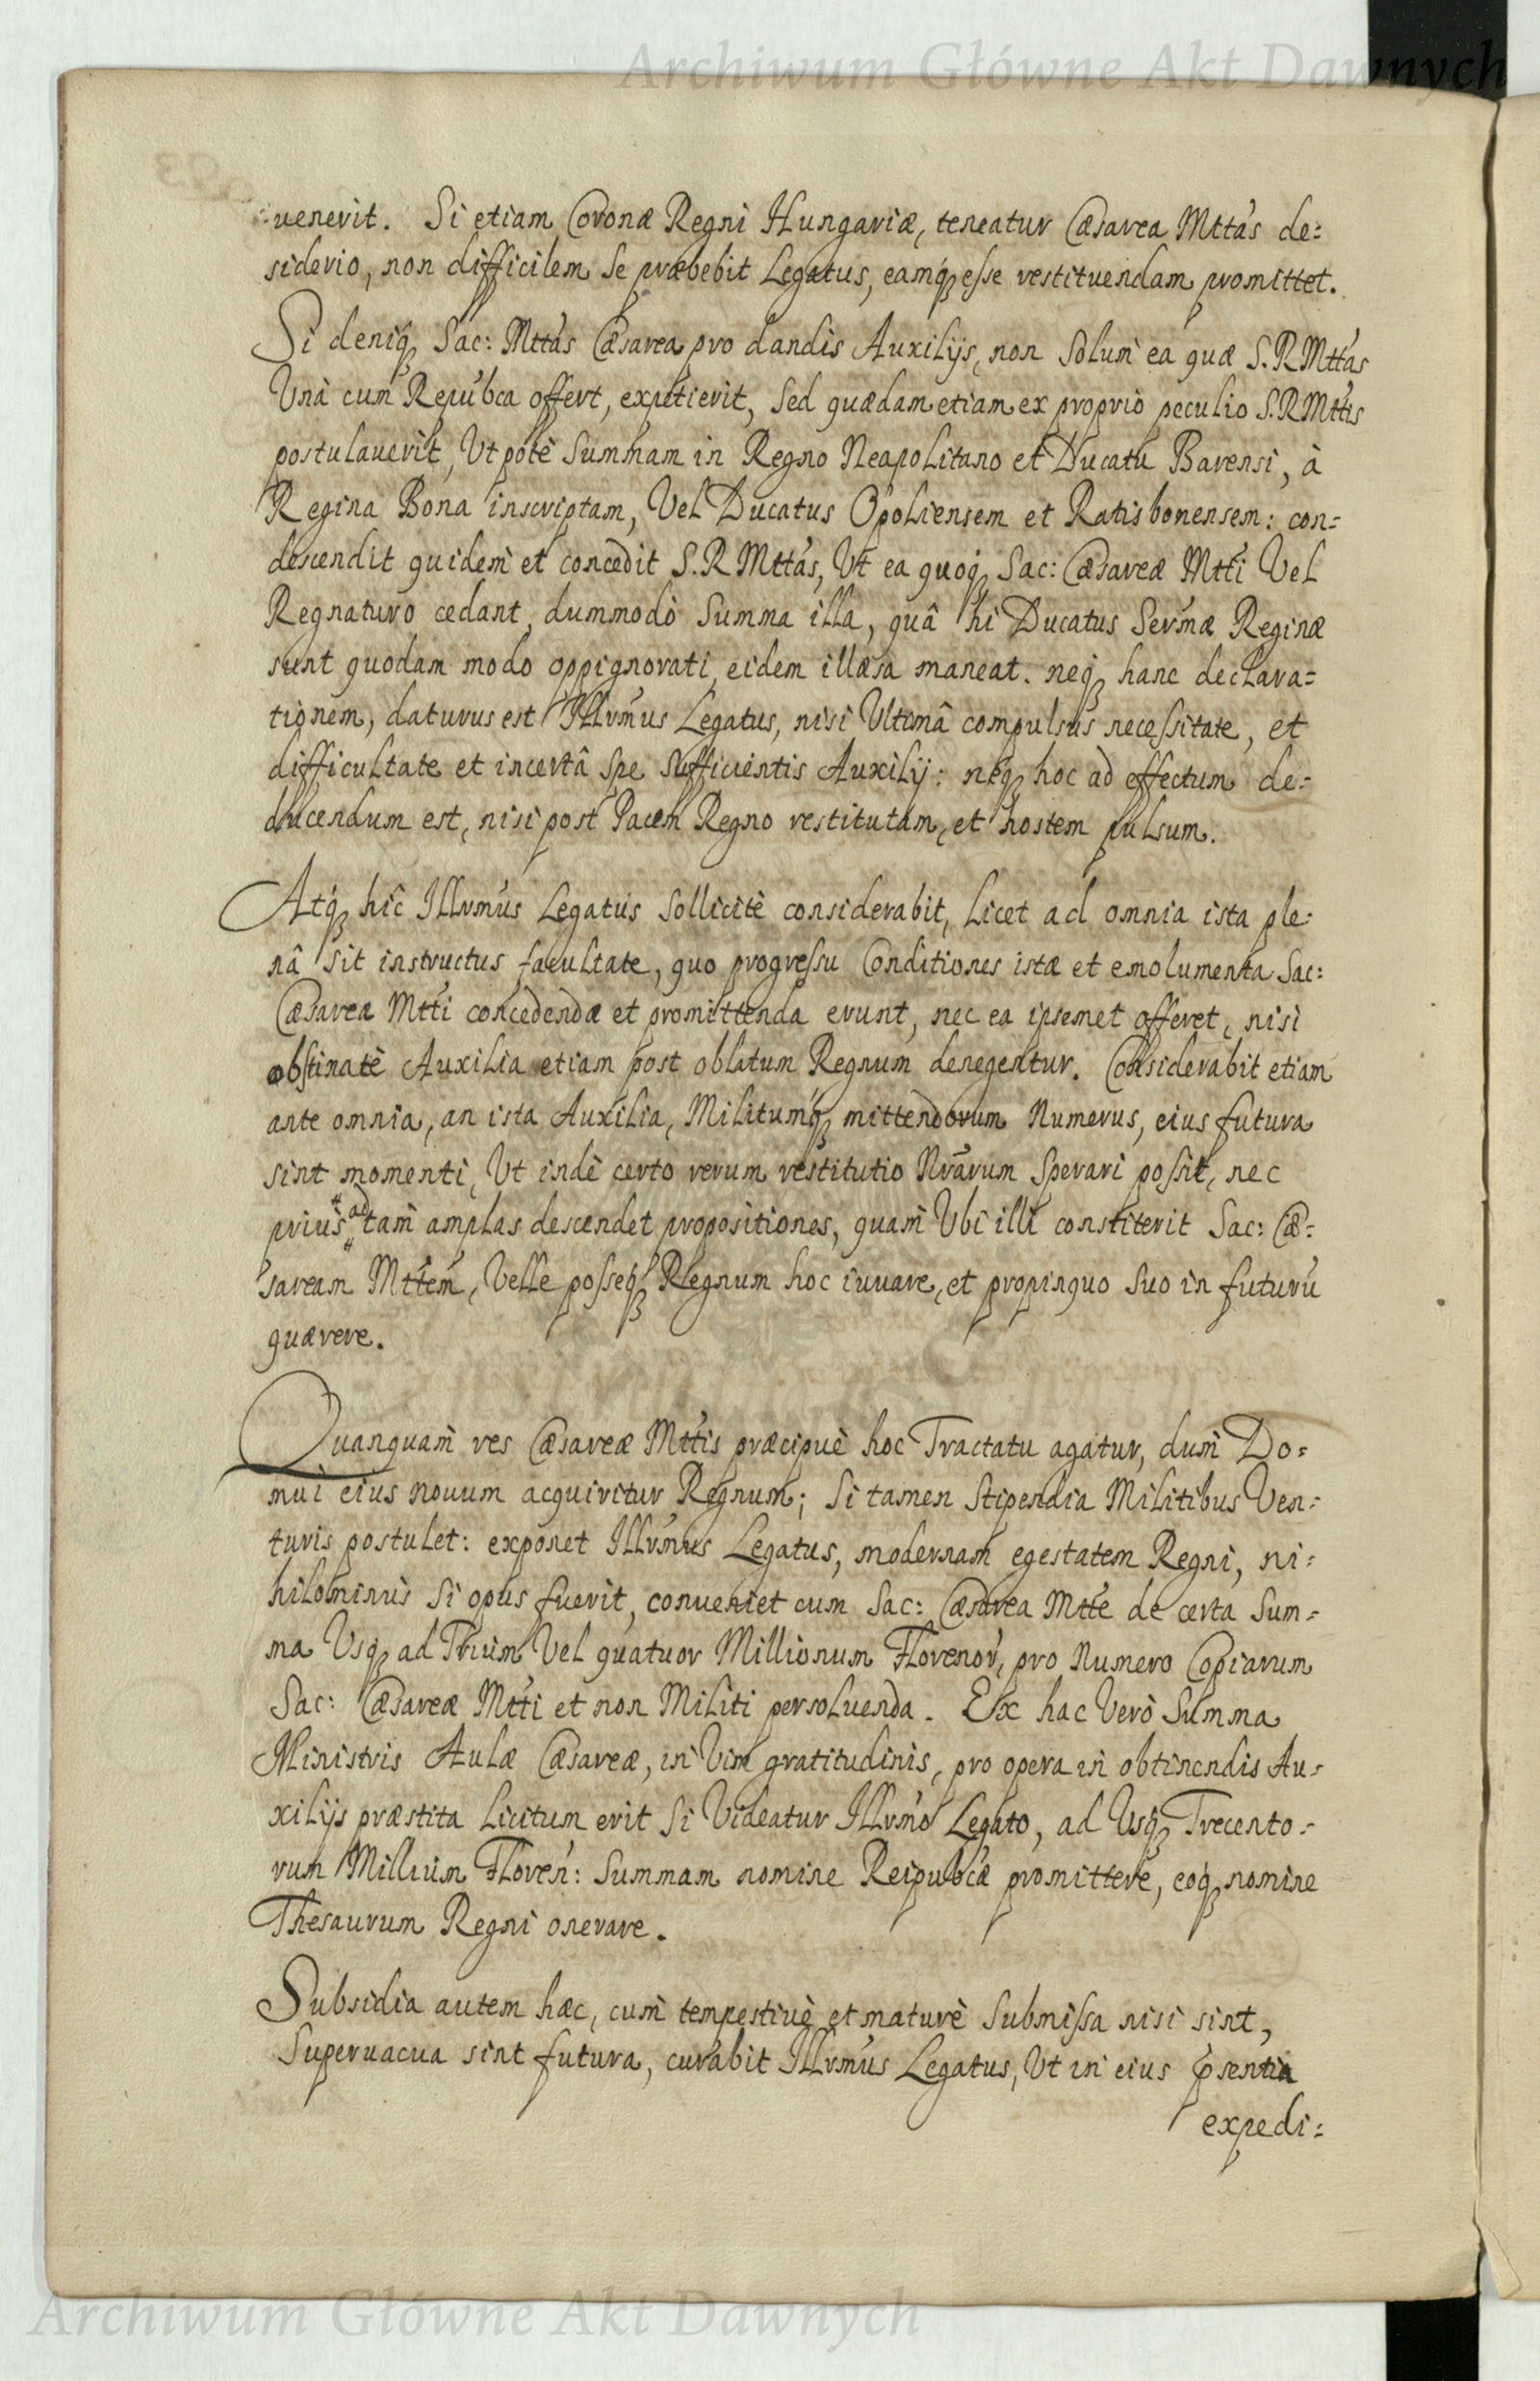 Archiwum Główne Akt Dawnych
venerit. Si etiam Coronæ Regni Hungariæ, teneatur Cæsarea Mttás de=
siderio, non difficilem se præbebit Legatus, eamq́ esse restituendam promittet.
Si deniq́ Sac: Mttás Cæsarea pro dandis Auxilijs, non solum ea quæ S.R Mttás
Vnà cum Repúbca offert, expetierit, sed quædam etiam ex proprio peculio S.R Mttis
postulauerit, Vt potè Summam in Regno Neapolitano et Ducatu Barensi, à
Regina Bona inscriptam, Vel Ducatus Opoliensem et Ratisbonensem: con=
descendit quidem et concedit S.R Mttás, Vt ea quoq́ Sac: Cæsareæ Mtti Vel
Regnaturo cedant, dummodò Summa illa, quâ hi Ducatus Sermæ Reginæ
sunt quodam modo oppignorati, eidem illæsa maneat. neq́ hanc declara=
tionem, daturus est Illrmús Legatus, nisi Vltimâ compulsus necessitate, et
difficultate et incertâ spe sufficientis Auxilij: neq́ hoc ad effectum de=
ducendum est, nisi post Pacem Regno restitutam, et hostem pulsum.
Atq́ hîc Illrmús Legatus sollicitè considerabit, Licet ad omnia ista ple=
nâ sit instructus facultate, quo progressu Conditiones istæ et emolumenta Sac:
Cæsarea Mtti concedendæ et promittenda erunt, nec ea ipsemet offeret, nisi
obstinatè Auxilia etiam post oblatum Regnum denegentur. Considerabit etiam
ante omnia, an ista Auxilia, Militumq́ mittendorum Numerus, eius futura
sint momenti, Vt indè certo rerum restitutio Nrarum sperari possit, nec
prius ad tam amplas descendet propositiones, quam Vbi illi constiterit Sac: Cæ=
saream Mttem, Velle posseq́ Regnum hoc iuvare, et propinquo suo in futurũ
quærere.
Quanquam res Cæsareæ Mttis præcipuè hoc Tractatu agatur, dum Do=
mui eius nouum acquiritur Regnum; Si tamen Stipendia Militibus Ven=
turis postulet: exponet Illrmus Legatus, modernam egestatem Regni, ni=
hilominus si opus fuerit, conueniet cum Sac: Cæsarea Mtte de certa Sum=
ma Vsq́ ad Trium Vel quatuor Millionum Florenor̃, pro Numero Copiarum
Sac: Cæsareæ Mtti et non Militi persoluenda. Ex hac Verò Summa
Ministris Aulæ Cæsareæ, in Vim gratitudinis, pro opera in obtinendis Au=
xilijs præstita Licitum erit si Videatur Illrmo Legato, ad Vsq́ Trecento=
rum Millium Floren: Summam nomine Reipubcæ promittere, eoq́ nomine
Thesaurum Regni onerare.
Subsidia autem hæc, cum tempestiuè et maturè Submissa nisi sint,
Superuacua sint futura, curabit Illrmús Legatus, Vt in eius p̃sentia
expedi=
Archiwum Główne Akt Dawnych